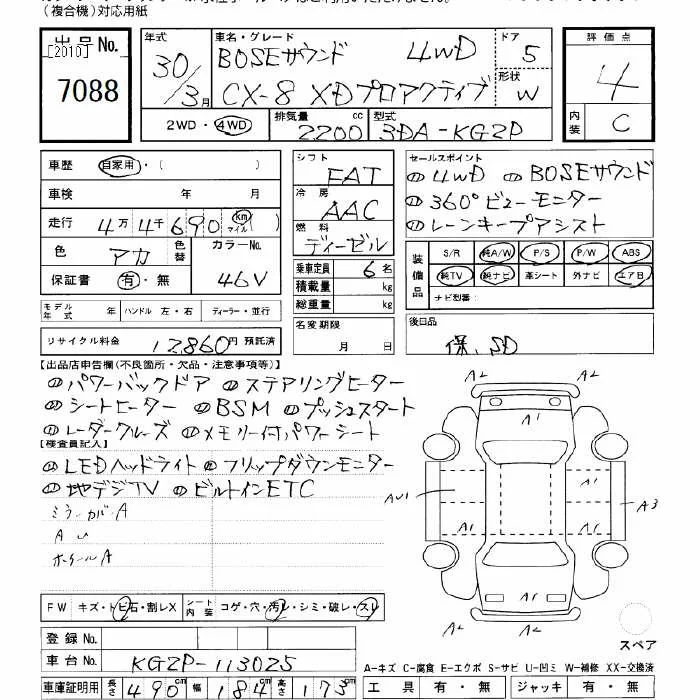 （複合機）対応用紙
出品No.
[2010]
7088
年式
30/3月
車名・グレード
BOSEサウンド 4WD
CX-8 XDプロアクティブ
ドア
5
形状
W
評価点
4
内装
C
2WD・4WD
排気量
2200cc
型式
3DA-KG2P
車歴 自家用・( )
車検 年 月
走行 4万4千690 km マイル
色 アカ 色替 カラーNo.
46V
保証書 有・無
モデル年式 年 ハンドル 左・右 ディーラー・並行
リサイクル料金 12860円 預託済
シフト
FAT
冷房
AAC
燃料
ディーゼル
乗車定員 6名
積載量 kg
総重量 kg
名変期限
月 日
セールスポイント
4WD BOSEサウンド
360°ビューモニター
レーンキープアシスト
装備品
S/R 純A/W P/S P/W ABS
純TV 純ナビ 革シート 外ナビ エアB
ナビ型番：
後日品
保、SD
【出品店申告欄(不良箇所・欠品・注意事項等)】
パワーバックドア ステアリングヒーター
シートヒーター BSM プッシュスタート
レーダークルーズ メモリー付パワーシート
【検査員記入】
LEDヘッドライト フリップダウンモニター
地デジTV ビルトインETC
ミラーカバーA
AU
ホイールA
A2 A2
A1
A1 A1
AU1 A3
A1 A1
A1
A2 A2
スペア
FW キズ・トビ石・割レX シート内装 コゲ・穴・汚レ・シミ・破レ・スレ
登録No.
車台No. KG2P-113025
A-キズ C-腐食 E-エクボ S-サビ U-凹ミ W-補修 XX-交換済
車庫証明用 長さ 490cm 幅 184cm 高さ 173cm
工具 有・無 ジャッキ 有・無